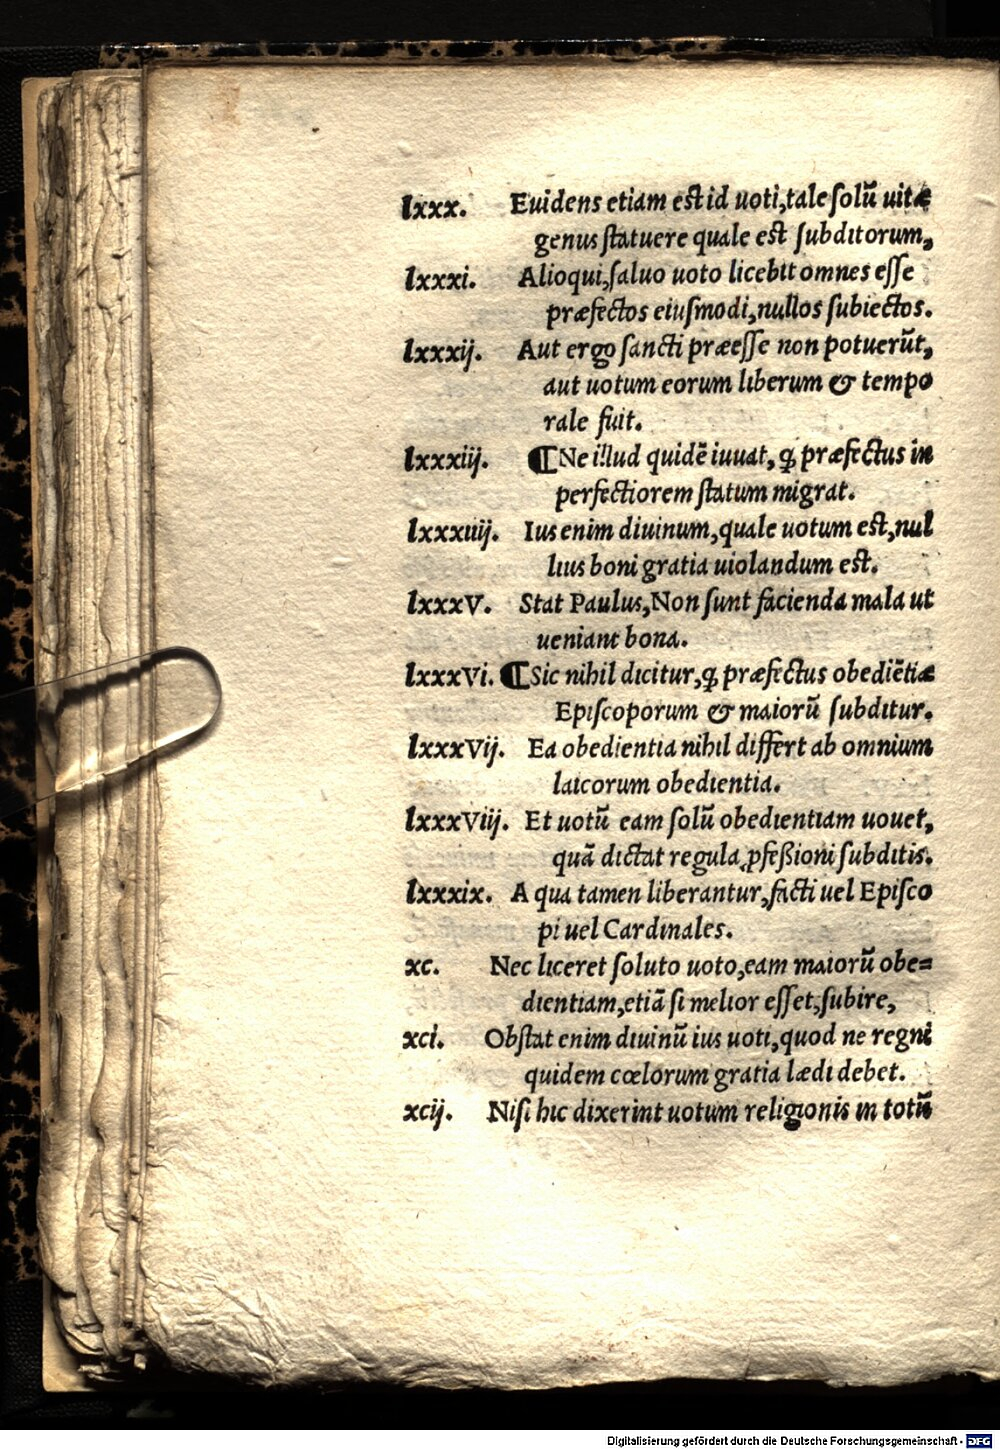 lxxx. Euidens etiam est id uoti,tale solũ uitæ
genus statuere quale est subditorum,
lxxxi. Alioqui,saluo uoto licebit omnes esse
præfectos eiusmodi,nullos subiectos.
lxxxij. Aut ergo sancti præesse non potuerũt,
aut uotum eorum liberum & tempo
rale fuit.
lxxxiij. ¶Ne illud quidẽ iuuat, ꝙ præfectus in
perfectiorem statum migrat.
lxxxiiij. Ius enim diuinum,quale uotum est,nul
lius boni gratia uiolandum est.
lxxxV. Stat Paulus,Non sunt facienda mala ut
ueniant bona.
lxxxVi. ¶Sic nihil dicitur,ꝙ præfectus obediẽtiæ
Episcoporum & maiorũ subditur.
lxxxVij. Ea obedientia nihil differt ab omnium
laicorum obedientia.
lxxxViij. Et uotũ eam solũ obedientiam uouet,
quã dictat regula ꝓfeßioni subditis.
lxxxix. A qua tamen liberantur,facti uel Episco
pi uel Cardinales.
xc. Nec liceret soluto uoto,eam maiorũ obe=
dientiam,etiã si melior esset,subire,
xci. Obstat enim diuinũ ius uoti,quod ne regni
quidem cœlorum gratia lædi debet.
xcij. Nisi hic dixerint uotum religionis in totũ
Digitalisierung gefördert durch die Deutsche Forschungsgemeinschaft - DFG